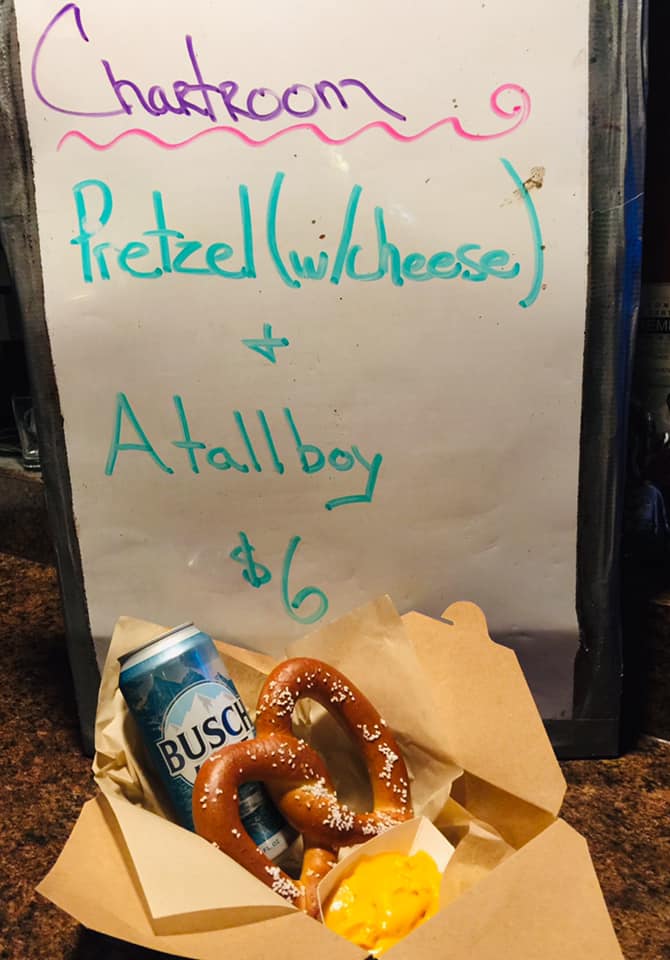 Chartroom
Pretzel (w/cheese)
+
A tallboy
$6
BUSCH
FL. OZ